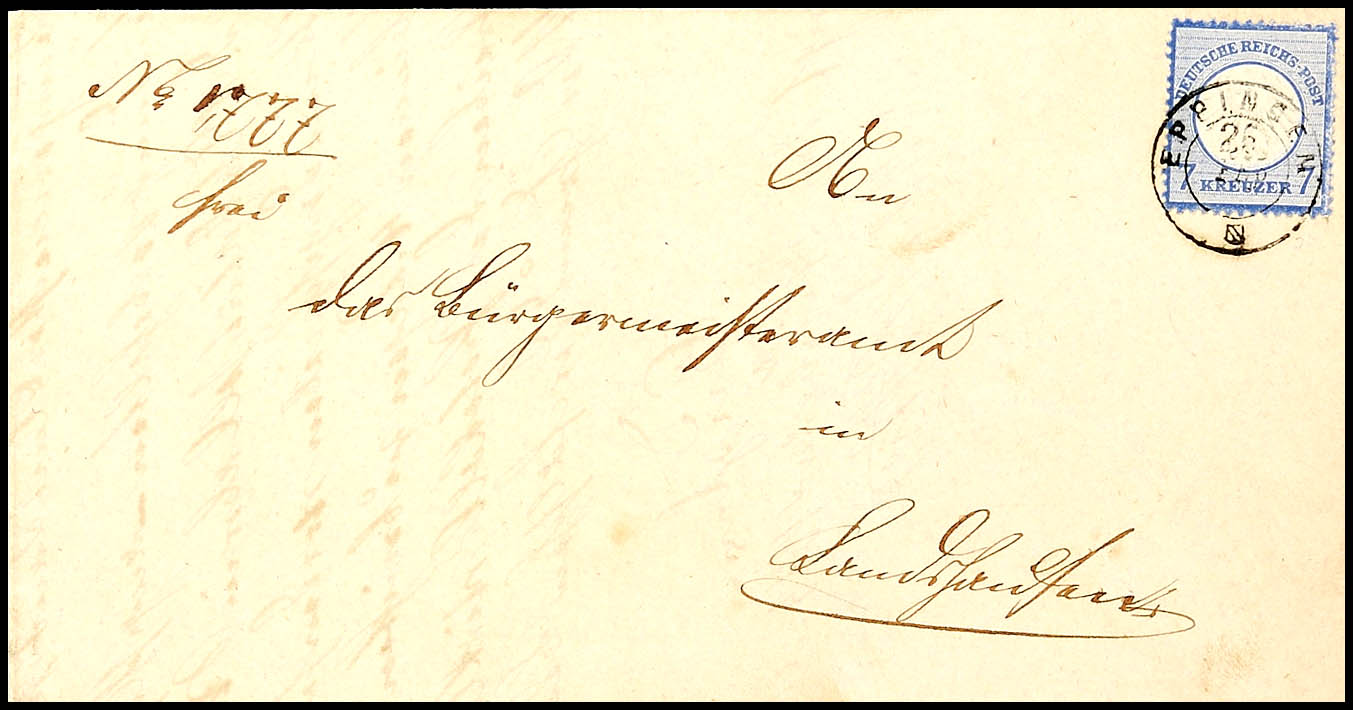 No 1777
frei
An
das Bürgermeisteramt
in
Landshausen
DEUTSCHE REICHS-POST
7 KREUZER 7
EPPINGEN
26